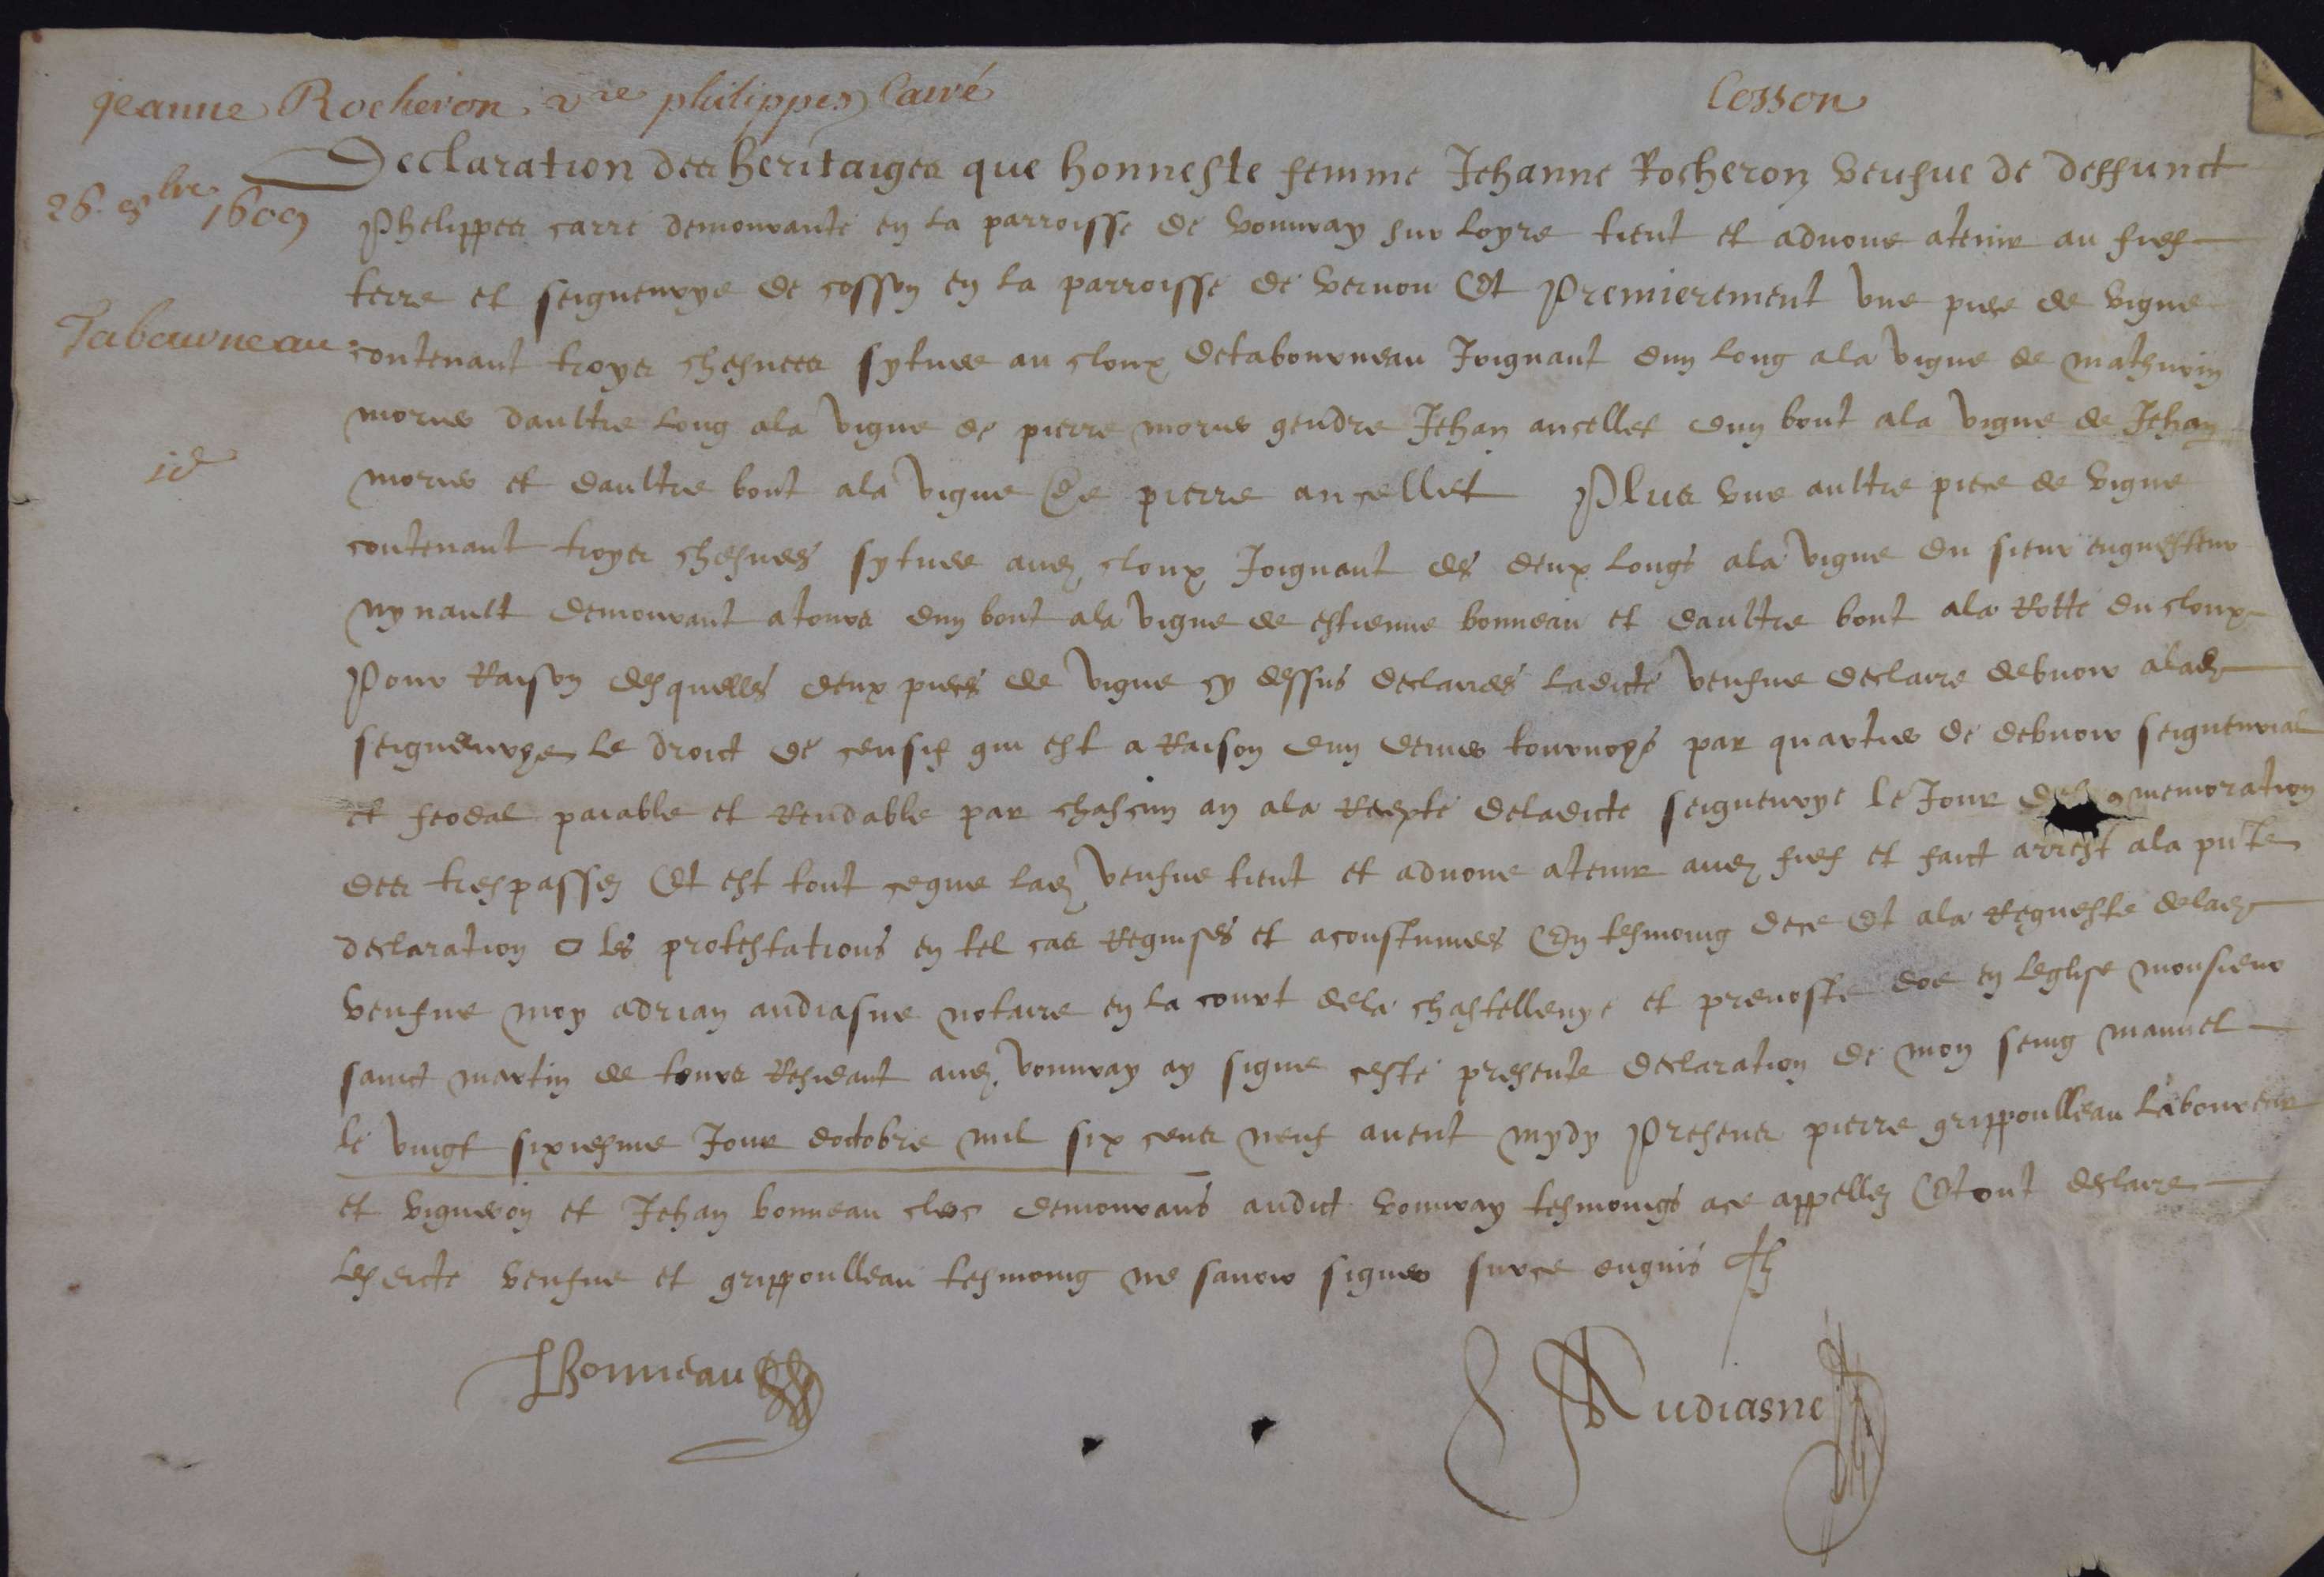 jeanne Rocheron vre philippes Carré
Cosson
26. 8bre 1609
Declaration des heritaiges que honneste femme Jehanne Rocheron veufue de deffunct
Phelippes carre demourante en la parroisse de vouuray sur loyre tient et aduoue atenir au fief
terre et seigneurye de cosson en la parroisse de vernou Et Premierement vne piece de vigne
Tabourneau
contenant troys chesnees sytuee au cloux detabourneau Joignant dun long ala vigne de mathurin
morier daultre long ala vigne de pierre morier gendre Jehan ancellet dun bout ala vigne de Jehan
id
morier et daultre bout ala vigne de pierre ancellet Plus vne aultre piece de vigne
contenant troys chesnees sytuee aud cloux Joignant des deux longs ala vigne du sieur enquesteur
nynault demourant atours dun bout ala vigne de estienne bonneau et daultre bout ala Rotte du cloux
Pour Raison desquelles deux pieces de vigne cy dessus declairees ladicte veufue declaire debuoir alad
seigneurye le droict de censif qui est a Raison dun denier tournoys par quartier de debuoir seigneurial
et feodal paiable et Rendable par chascun an ala Recepte deladicte seigneurye le Jour memoration
des trespassez Et est tout ceque lad veufue tient et aduoue atenir aud fief et faict arrest ala pnte
declaration O les protestations en tel cas Requises et acoustumees En tesmoing dece Et ala Requeste delad
veufue moy adrian audiasne notaire en la court dela chastellenye et preuoste doe en leglise monsieur
sainct martin de tours Residant aud vouuray ay signe ceste presente declaration de mon seing manuel
le vingt sixiesme Jour doctobre mil six cens neuf auent mydy Presens pierre grippoulleau laboureur
et vigneron et Jehan bonneau clerc demourans audict vouuray tesmoings ace appellez Et ont declaire
lesdicte veufue et grippoulleau tesmoing ne sauoir signer surce enquis
Bonneau
Audiasne